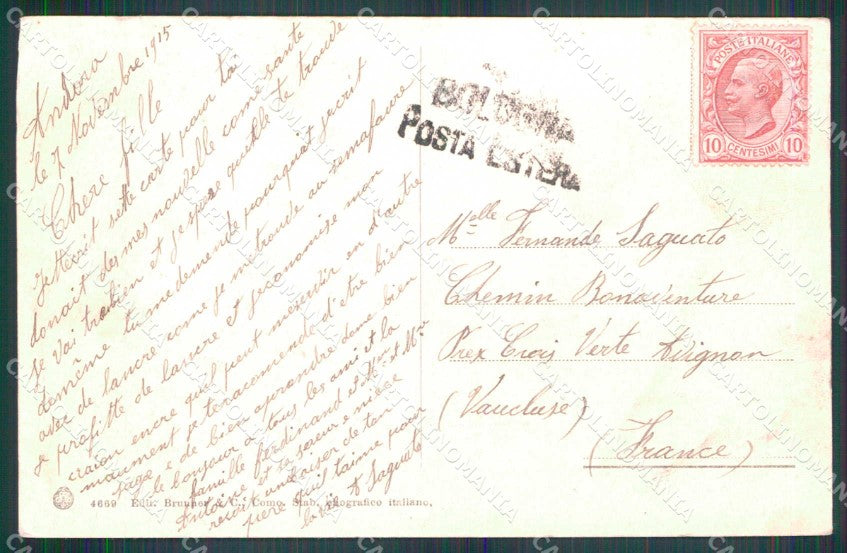 Andora
le 7 Novembre 1915
Chere fille
Je t'ecrit sette carte pour toi
donait des mes nouvelle come sante
je vai tre bien et j'espere quelle te trouve
de mème tu me demende pourquat j'ecrit
avec de lancre come je me trouve au semafaore
je profitte de lancre et j'economise mon
craion encre qui peut me servir en d'autre
mauument je te racomende d'etre bien
sage e de bien aprendre done bien
le bonjour a tous les ami et la
famille Ferdinand et Mr et Mme
Antoine et ta saeur e niese
recoit un baiser de ton
pere qui t'aime pour
la vie A Saguato
BOLOGNA
POSTA ESTERA
POSTE ITALIANE
10 CENTESIMI 10
Melle Fernande Saguato
Chemin Bonaventure
Prex Crois Verte Avignon
(Vaucluse)
(France)
4669 Edit. Brunner & C., Como. Stab. eliografico italiano.
CARTOLINOMANIA